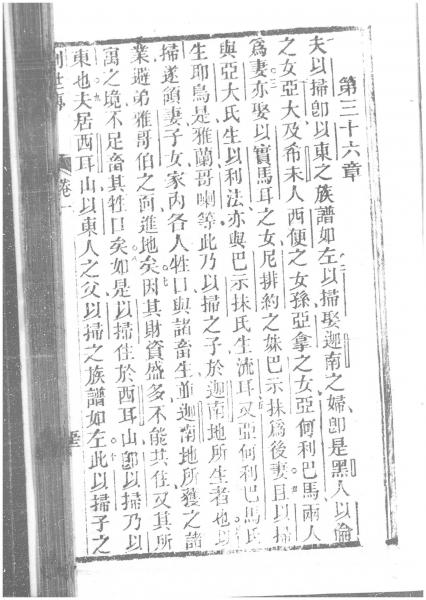 第三十六章
夫以掃卽以東之族譜如左以掃娶迦南之婦卽是黑人以倫
之女亞大及希未人西便之女孫亞拿之女亞何利巴馬兩人
爲妻亦娶以實馬耳之女尼排約之妹巴示抹爲後妻且以掃
與亞大氏生以利法亦與巴示抹氏生流耳又亞何利巴馬氏
生耶鳥是雅蘭哥喇等此乃以掃之子於迦南地所生者也以
掃遂領妻子女家內各人牲口與諸畜生並迦南地所獲之諸
業避弟雅哥伯之向進地矣因其財資盛多不能共住又其所
寓之境不足畜其牲口矣如是以掃住於西耳山卽以掃乃以
東也夫居西耳山以東人之父以掃之族譜如左此以掃子之
創世傳 卷一